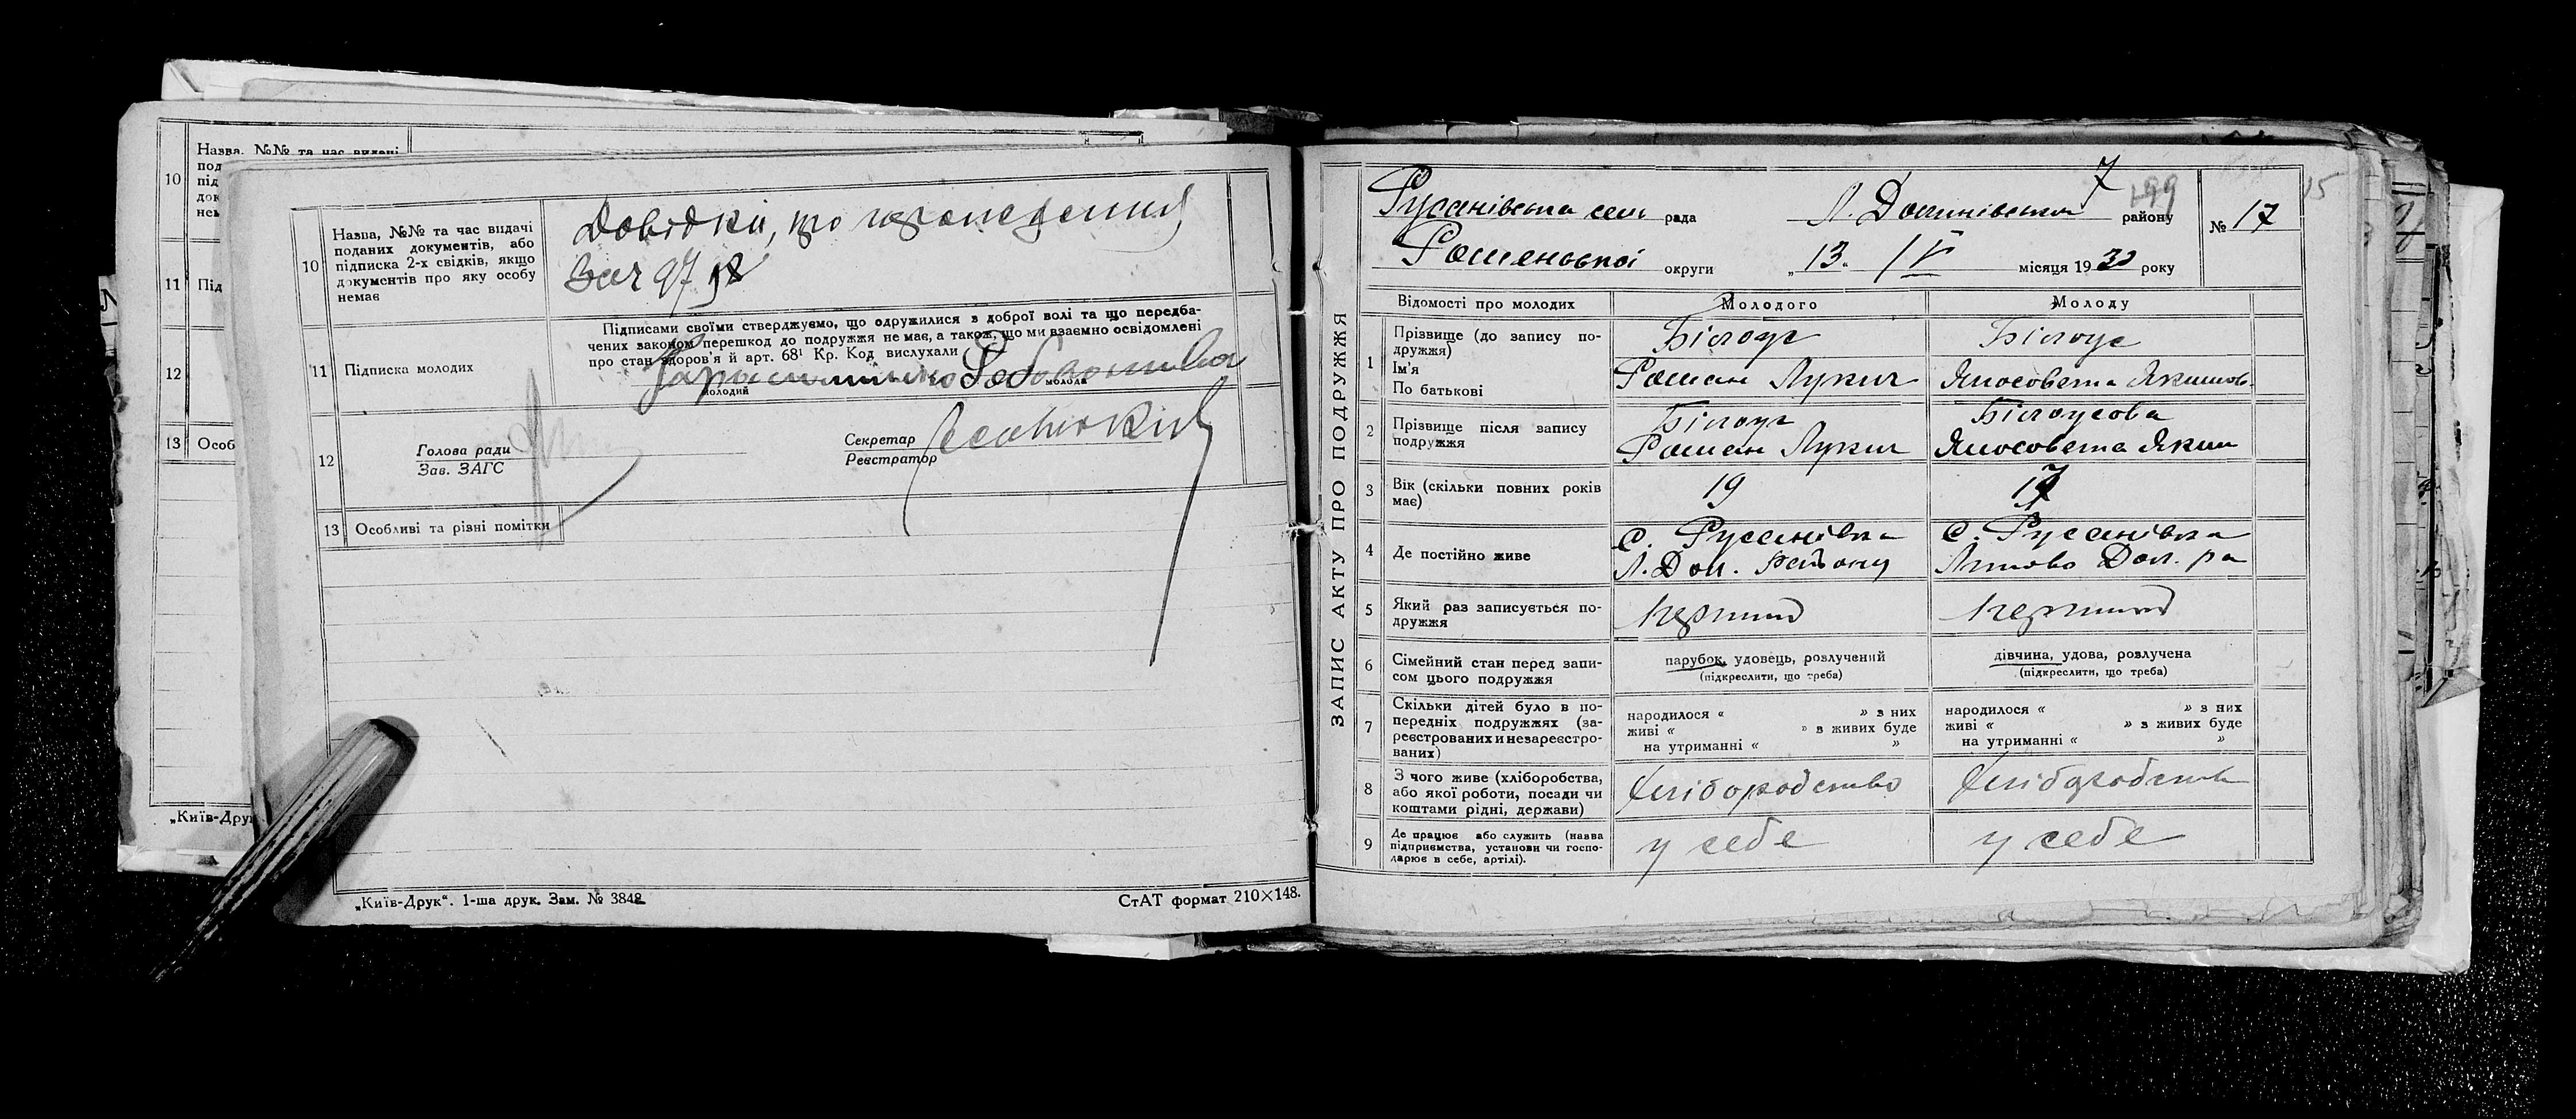 10
Назва, №№ та час видачі
под
під
док
нем
11
Під
12
13
Особ
„Київ-Друк
10
Назва, №№ та час видачі
поданих документів, або
підписка 2-х свідків, якщо
документів про яку особу
немає
Довідки, що
За ч 97
Підписами своїми стверджуємо, що одружилися з доброї волі та що передба-
чених законом перешкод до подружжя немає, а також, що ми взаємно освідомлені
про стан здоров'я й арт. 68¹ Кр. Код вислухали
11
Підписка молодих
молодий
молода
12
Голова ради
Зав. ЗАГС
Секретар
Реєстратор
13
Особливі та різні помітки
„Київ-Друк“. 1-ша друк. Зам. № 3842
СтАТ формат 210×148.
ЗАПИС АКТУ ПРО ПОДРУЖЖЯ
7
199
15
Русанівська сель рада Л. Долинівського району
№ 17
Роменської округи „13. IV місяця 1930 року
Відомості про молодих
Молодого
Молоду
1
Прізвище (до запису по-
дружжя)
Ім'я
По батькові
Білоус
Роман Лукич
Білоус
Ялосовета Якимов.
2
Прізвище після запису
подружжя
Білоус
Роман Лукич
Білоусова
Ялосовета Яким
3
Вік (скільки повних років
має)
19
17
4
Де постійно живе
с. Русанівка
Л. Дол. Району
с. Русанівка
Липово Дол. ра
5
Який раз записується по-
дружжя
перший
перший
6
Сімейний стан перед запи-
сом цього подружжя
парубок, удовець, розлучений
(підкреслити, що треба)
дівчина, удова, розлучена
(підкреслити, що треба)
7
Скільки дітей було в по-
передніх подружжях (за-
реєстрованих и незареєстро-
ваних)
народилося « » з них
живі « » в живих буде
на утриманні « »
народилося « » з них
живі « » в живих буде
на утриманні « »
8
З чого живе (хліборобства,
або якої роботи, посади чи
коштами рідні, держави)
хліборобство
хліборобств
9
Де працює або служить (назва
підприємства, установи чи госпо-
дарює в себе, артілі).
у себе
у себе